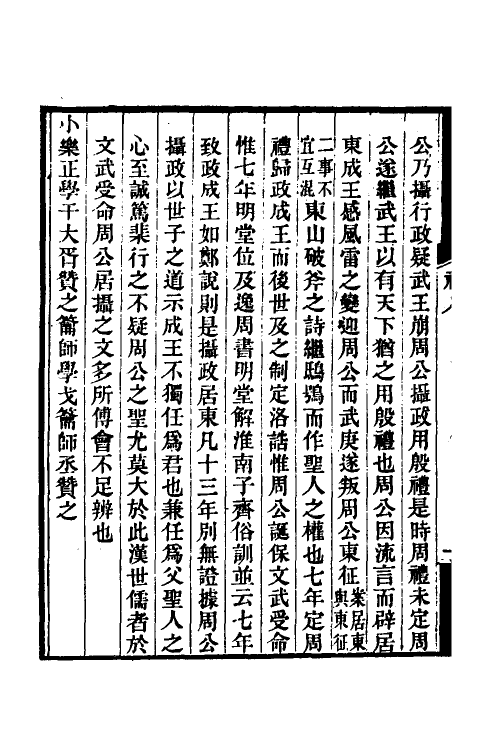 公乃攝行政疑武王崩周公攝政用殷禮是時周禮未定周
公遂繼武王以有天下猶之用殷禮也周公因流言而辟居
東成王感風雷之變迎周公而武庚遂叛周公東征案居東與東征
二事不宜互混東山破斧之詩繼鴟鴞而作聖人之權也七年定周
禮歸政成王而後世及之制定洛誥惟周公誕保文武受命
惟七年明堂位及逸周書明堂解淮南子齊俗訓並云七年
致政成王如鄭說則是攝政居東凡十三年別無證據周公
攝政以世子之道示成王不獨任爲君也兼任爲父聖人之
心至誠篤棐行之不疑周公之聖尤莫大於此漢世儒者於
文武受命周公居攝之文多所傅會不足辨也
小樂正學干大胥贊之籥師學戈籥師丞贊之